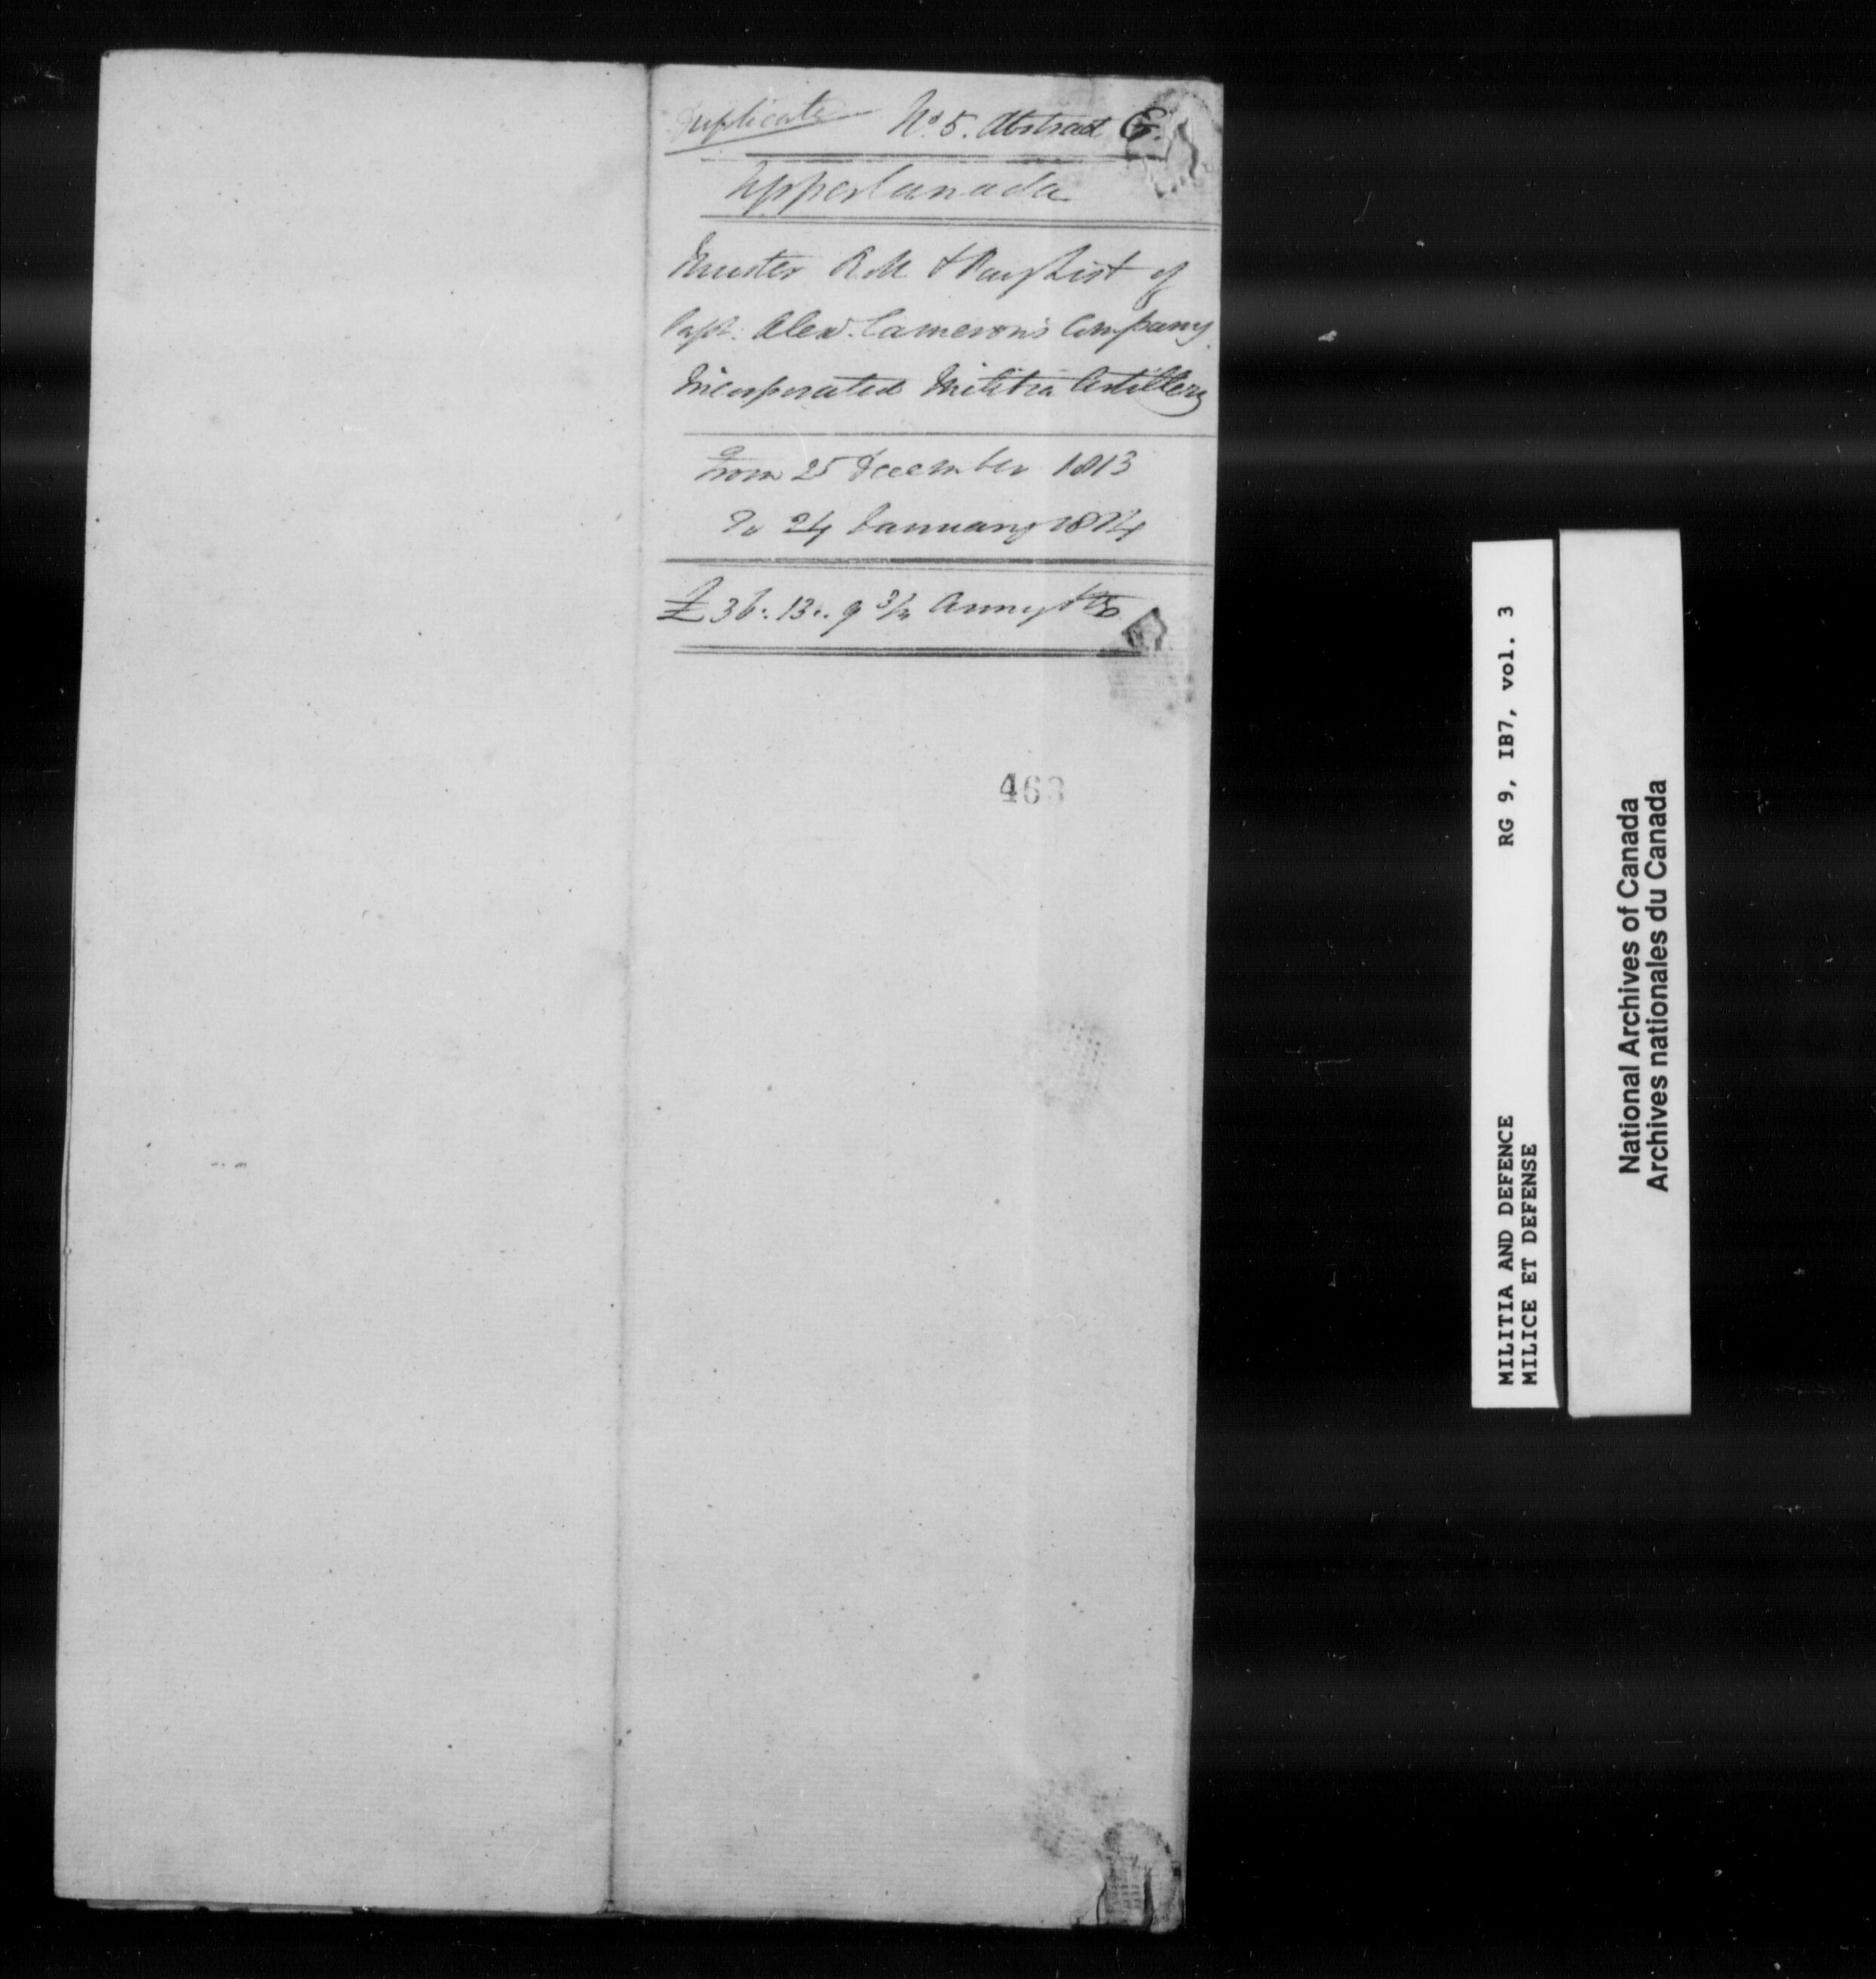 Duplicate No 5. Abstract G.
Upper Canada
Muster Roll & Pay List of
Capt. Alexr. Cameron's Company
Incorporated Militia Artillery
From 25 December 1813
To 24 January 1814
£36..13..9 3/4 Army
463
RG 9, IB7, vol. 3
MILITIA AND DEFENCE
MILICE ET DEFENSE
National Archives of Canada
Archives nationales du Canada